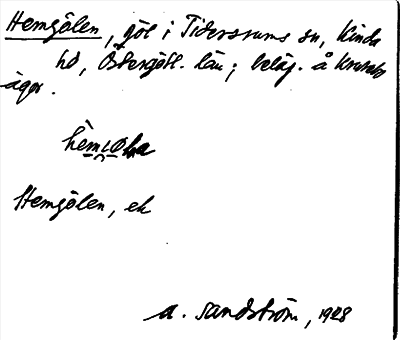 Hemgölen, göl i Tidersrums sn, Kinda
hd, Östergötl. län; beläg. å
ägor.
Hemgölen, ek
A. Sandström, 1928